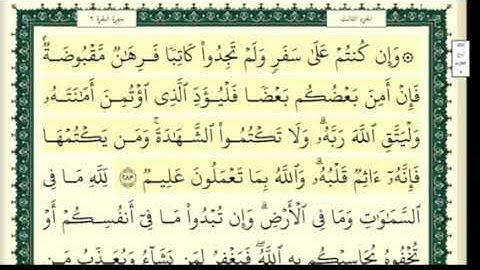 الجزء الثالث سورة البقرة ٢
۞ وَإِن كُنتُمْ عَلَىٰ سَفَرٍ وَلَمْ تَجِدُوا۟ كَاتِبًا فَرِهَـٰنٌ مَّقْبُوضَةٌ ۖ
فَإِنْ أَمِنَ بَعْضُكُم بَعْضًا فَلْيُؤَدِّ ٱلَّذِى ٱؤْتُمِنَ أَمَـٰنَتَهُۥ
وَلْيَتَّقِ ٱللَّهَ رَبَّهُۥ ۗ وَلَا تَكْتُمُوا۟ ٱلشَّهَـٰدَةَ ۚ وَمَن يَكْتُمْهَا
فَإِنَّهُۥٓ ءَاثِمٌ قَلْبُهُۥ ۗ وَٱللَّهُ بِمَا تَعْمَلُونَ عَلِيمٌ ٢٨٣ لِّلَّهِ مَا فِى
ٱلسَّمَـٰوَٰتِ وَمَا فِى ٱلْأَرْضِ ۗ وَإِن تُبْدُوا۟ مَا فِىٓ أَنفُسِكُمْ أَوْ
تُخْفُوهُ يُحَاسِبْكُم بِهِ ٱللَّهُ ۖ فَيَغْفِرُ لِمَن يَشَآءُ وَيُعَذِّبُ مَن